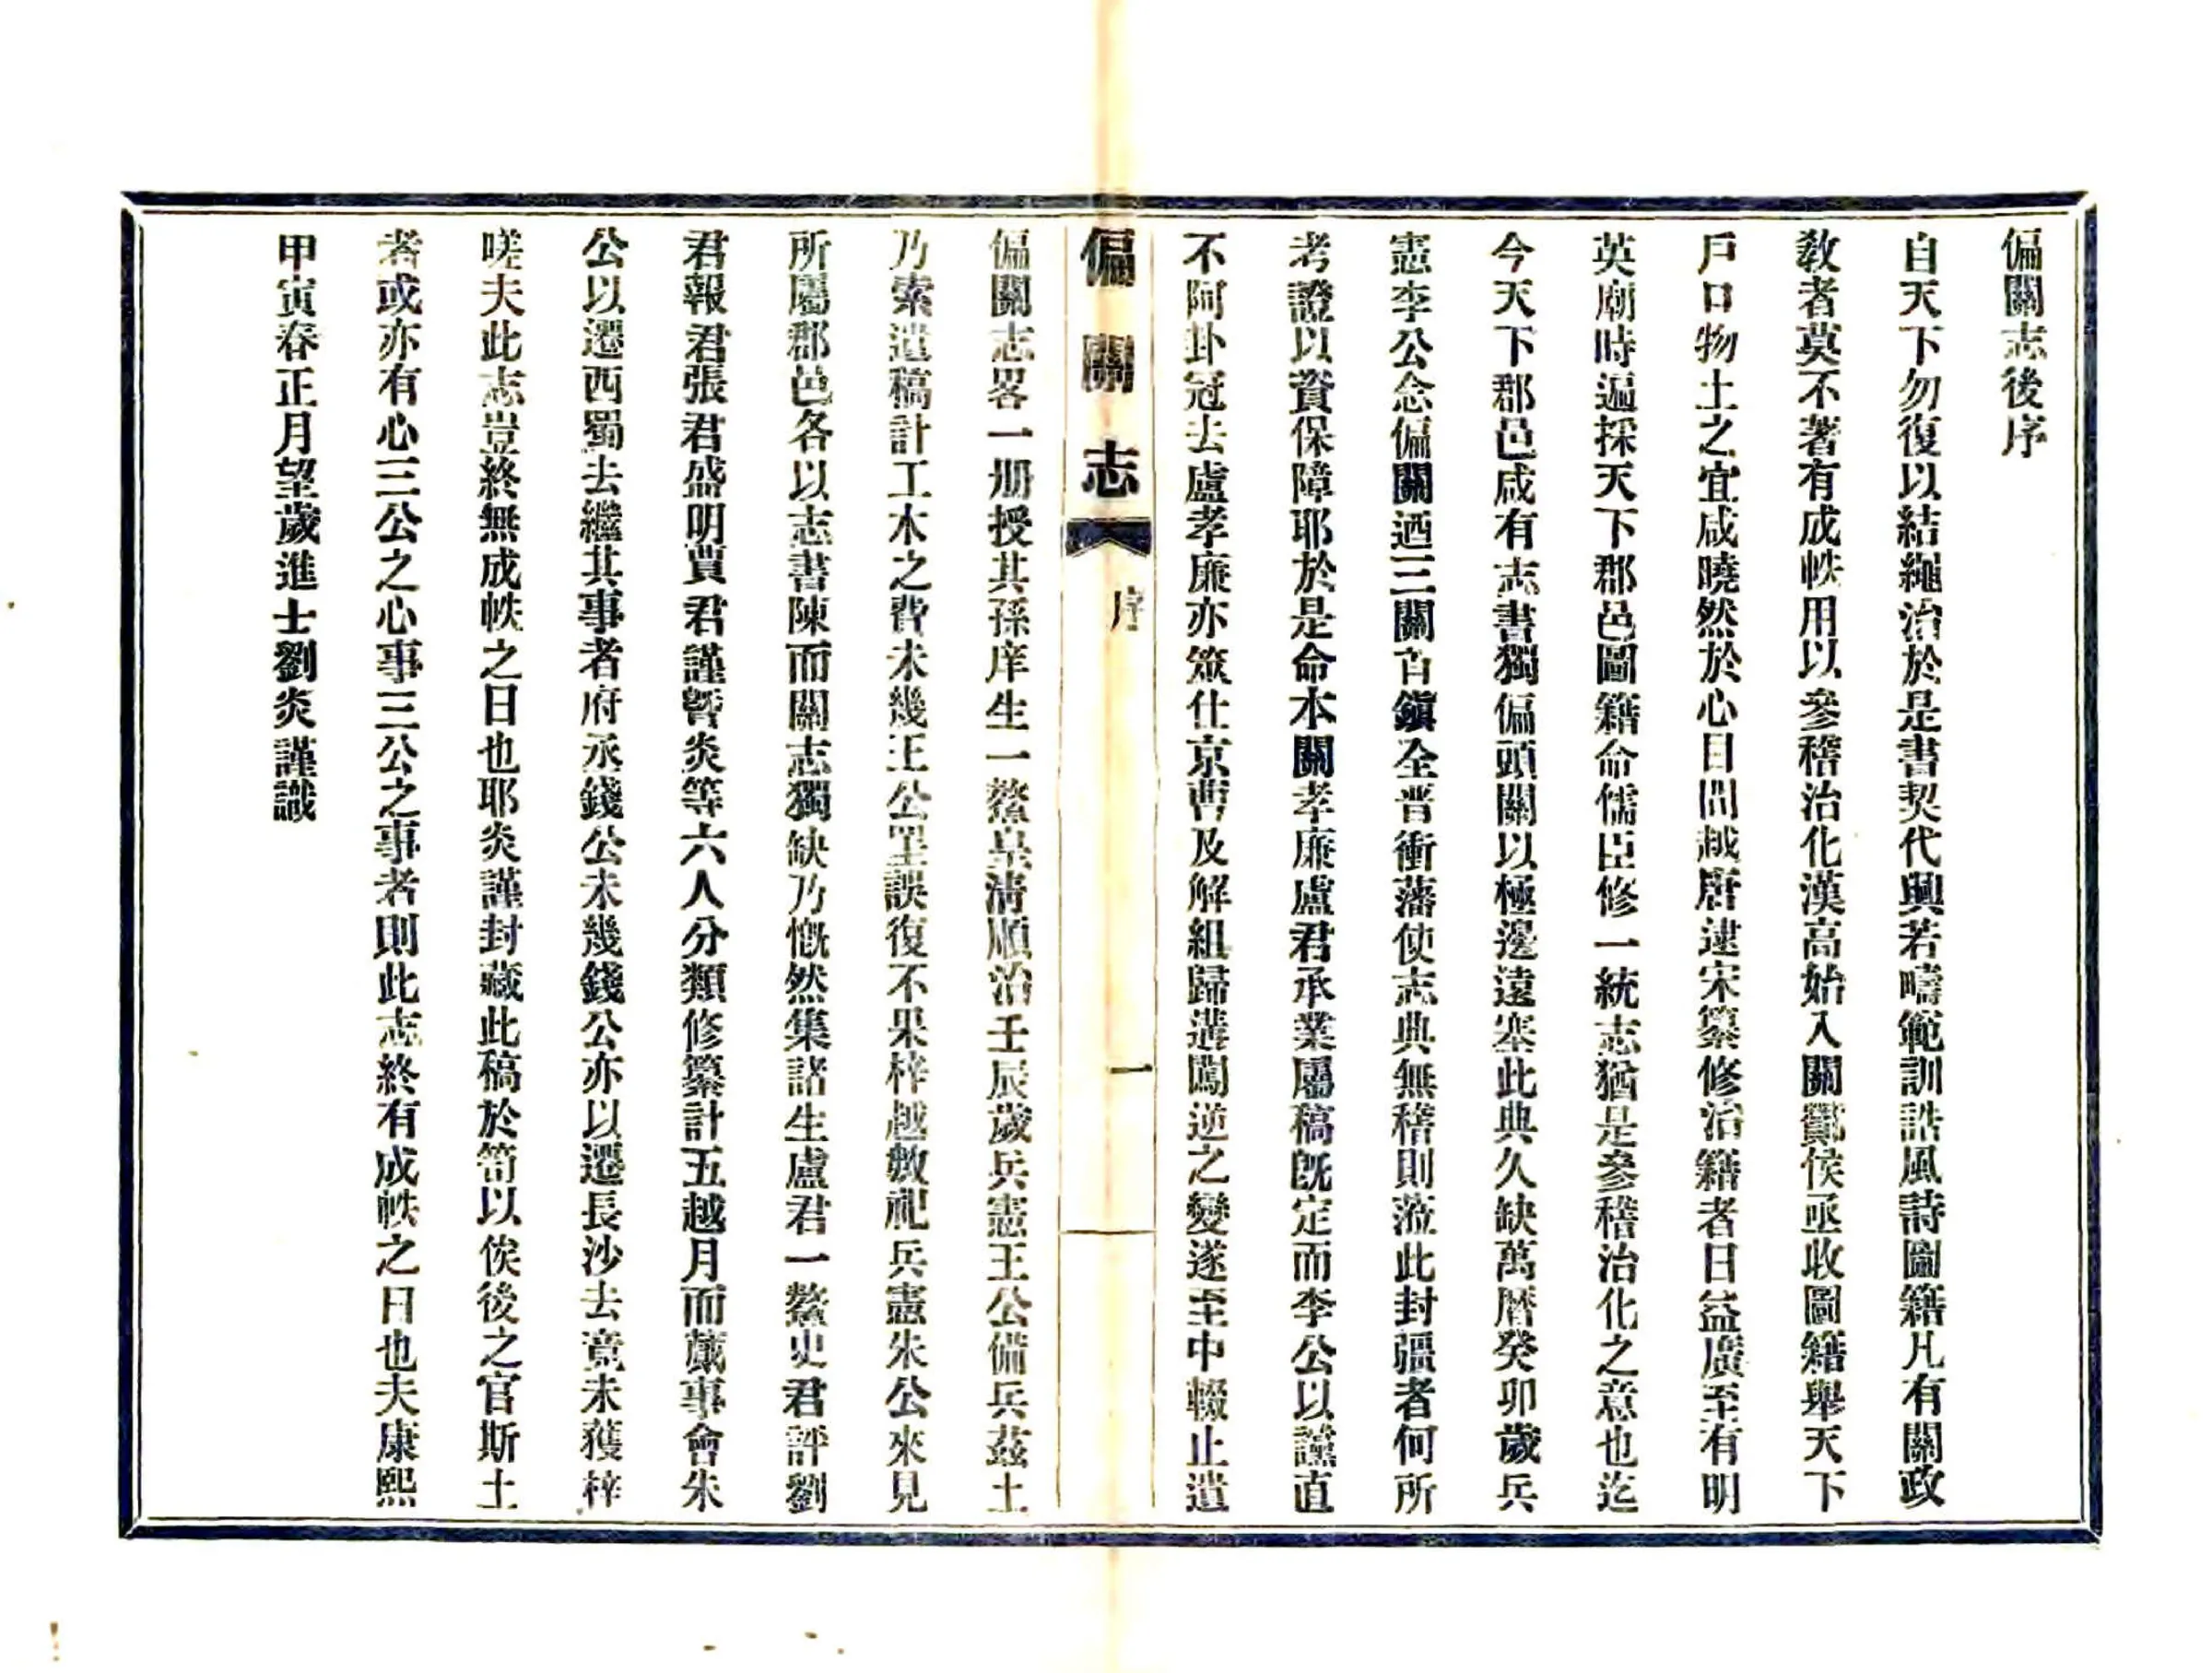 偏關志後序
自天下勿復以結繩治於是書契代興若疇範訓誥風詩圖籍凡有關政
敎者莫不著有成帙用以參稽治化漢高始入關酇侯亟收圖籍舉天下
戶口物土之宜咸曉然於心目間越唐逮宋纂修治籍者日益廣至有明
英廟時遍採天下郡邑圖籍命儒臣修一統志猶是參稽治化之意也迄
今天下郡邑咸有志書獨偏頭關以極邊遠塞此典久缺萬曆癸卯歲兵
憲李公念偏關迺三關首鎭全晋衝藩使志典無稽則蒞此封疆者何所
考證以資保障耶於是命本關孝廉盧君承業屬稿旣定而李公以讜直
不阿卦冠去盧孝廉亦筮仕京曹及解組歸遘闖逆之變遂至中輟止遺
偏關志
序
一
偏關志畧一册授其孫庠生一鰲皇淸順治壬辰歲兵憲王公備兵茲土
乃索遺稿計工木之費未幾王公罣誤復不果梓越數祀兵憲朱公來見
所屬郡邑各以志書陳而關志獨缺乃慨然集諸生盧君一鰲史君評劉
君報君張君盛明賈君謹暨炎等六人分類修纂計五越月而蕆事會朱
公以遷西蜀去繼其事者府丞錢公未幾錢公亦以遷長沙去竟未獲梓
嗟夫此志豈終無成帙之日也耶炎謹封藏此稿於笥以俟後之官斯土
者或亦有心三公之心事三公之事者則此志終有成帙之日也夫康熙
甲寅春正月望歲進士劉炎謹識